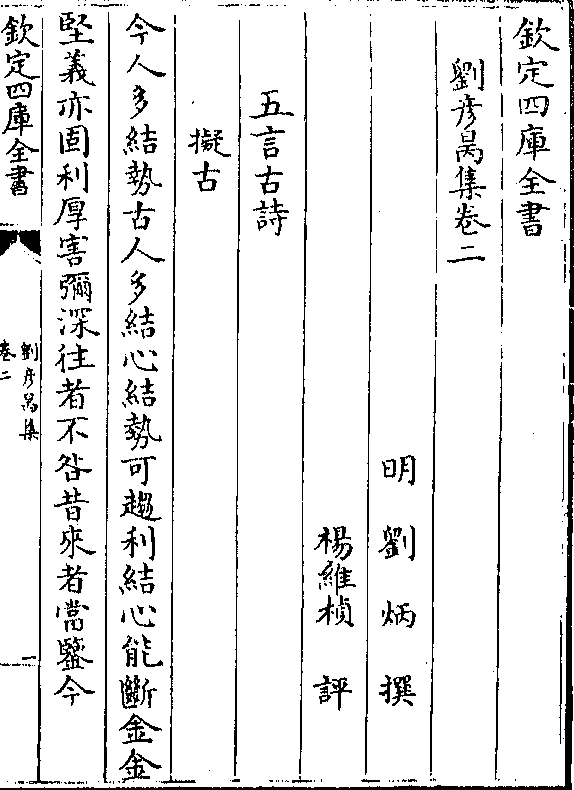 欽定四庫全書
劉彦昺集卷二
明劉炳撰
楊維楨評
五言古詩
擬古
今人多結勢古人多結心結勢可趨利結心能斷金金
堅義亦固利厚害彌深往者不咎昔來者當鑒今
欽定四庫全書
劉彦昺集
卷二
一